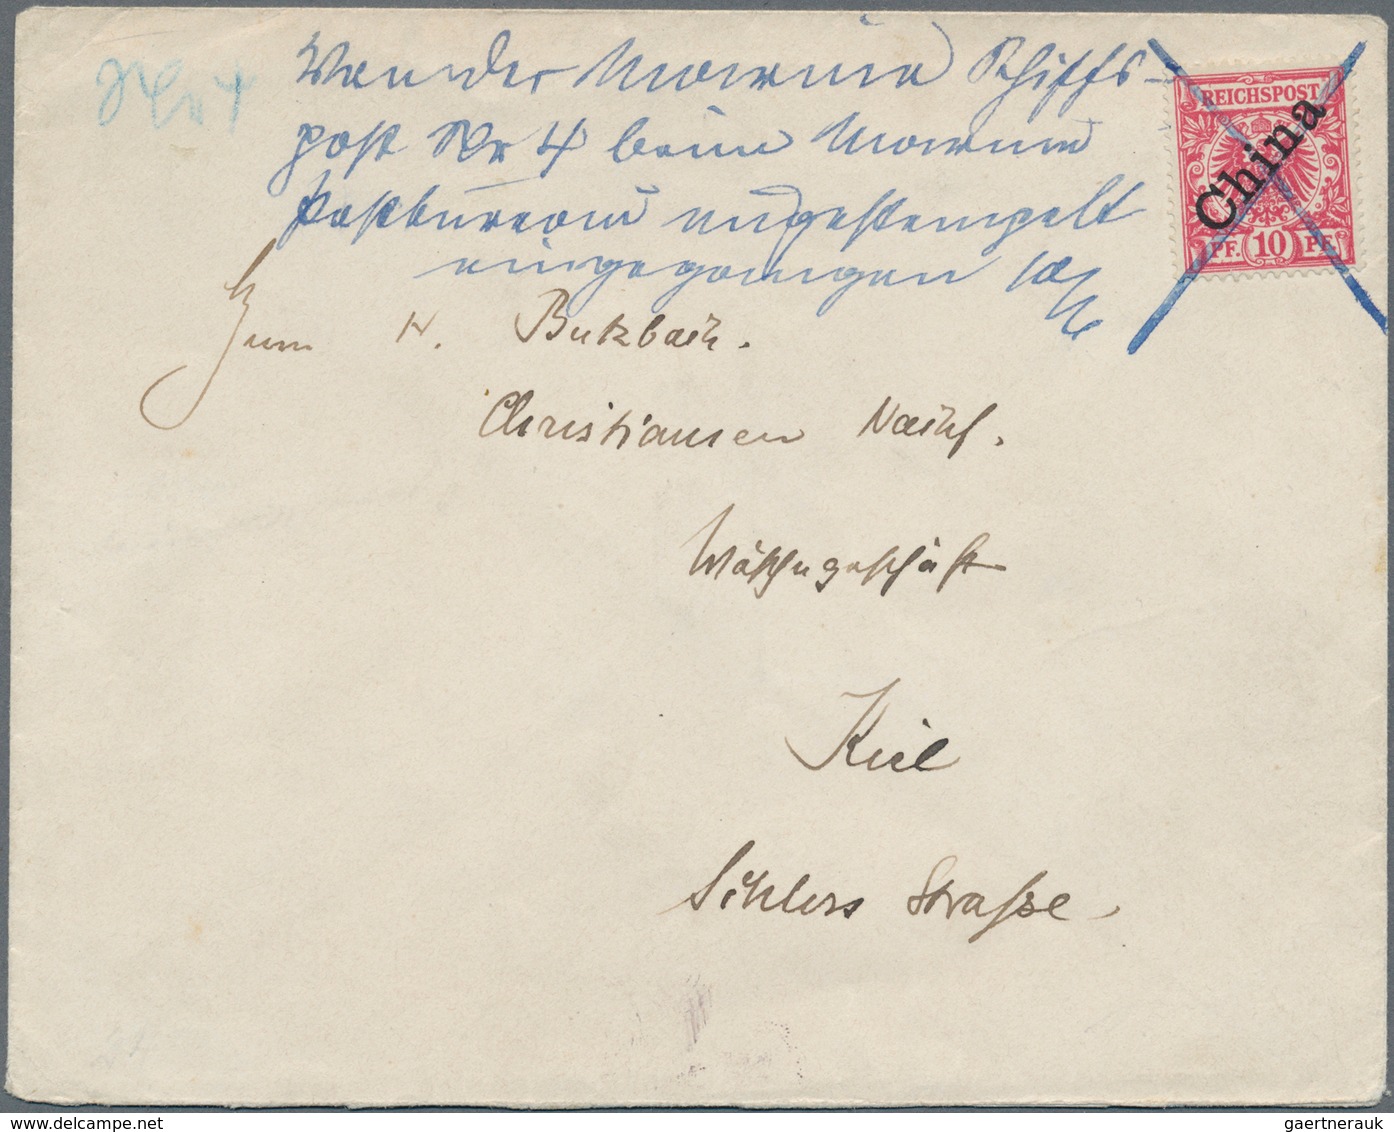 No 4
Von der Marine Schiffs-
post No 4 beim Marine
Postbureau ungestempelt
eingegangen 10/6
REICHSPOST
China
PF. 10 PF.
Herrn H. Butzbach.
Christiansen Nachf.
Wäschegeschäft
Kiel
Schloss Straße
gaertnerauk